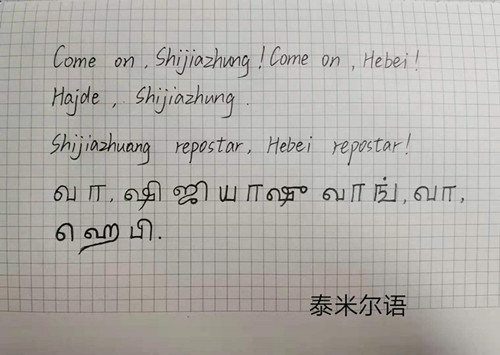 Come on, Shijiazhung! Come on, Hebei!
Hajde, Shijiazhung.
Shijiazhuang repostar, Hebei repostar!
வா, ஷிஜியாஷுவாங், வா,
ஹெபி.
泰米尔语